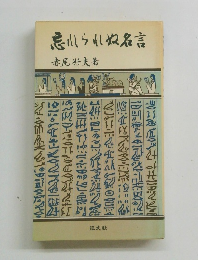 忘れられぬ名言
赤尾好夫著
旺文社